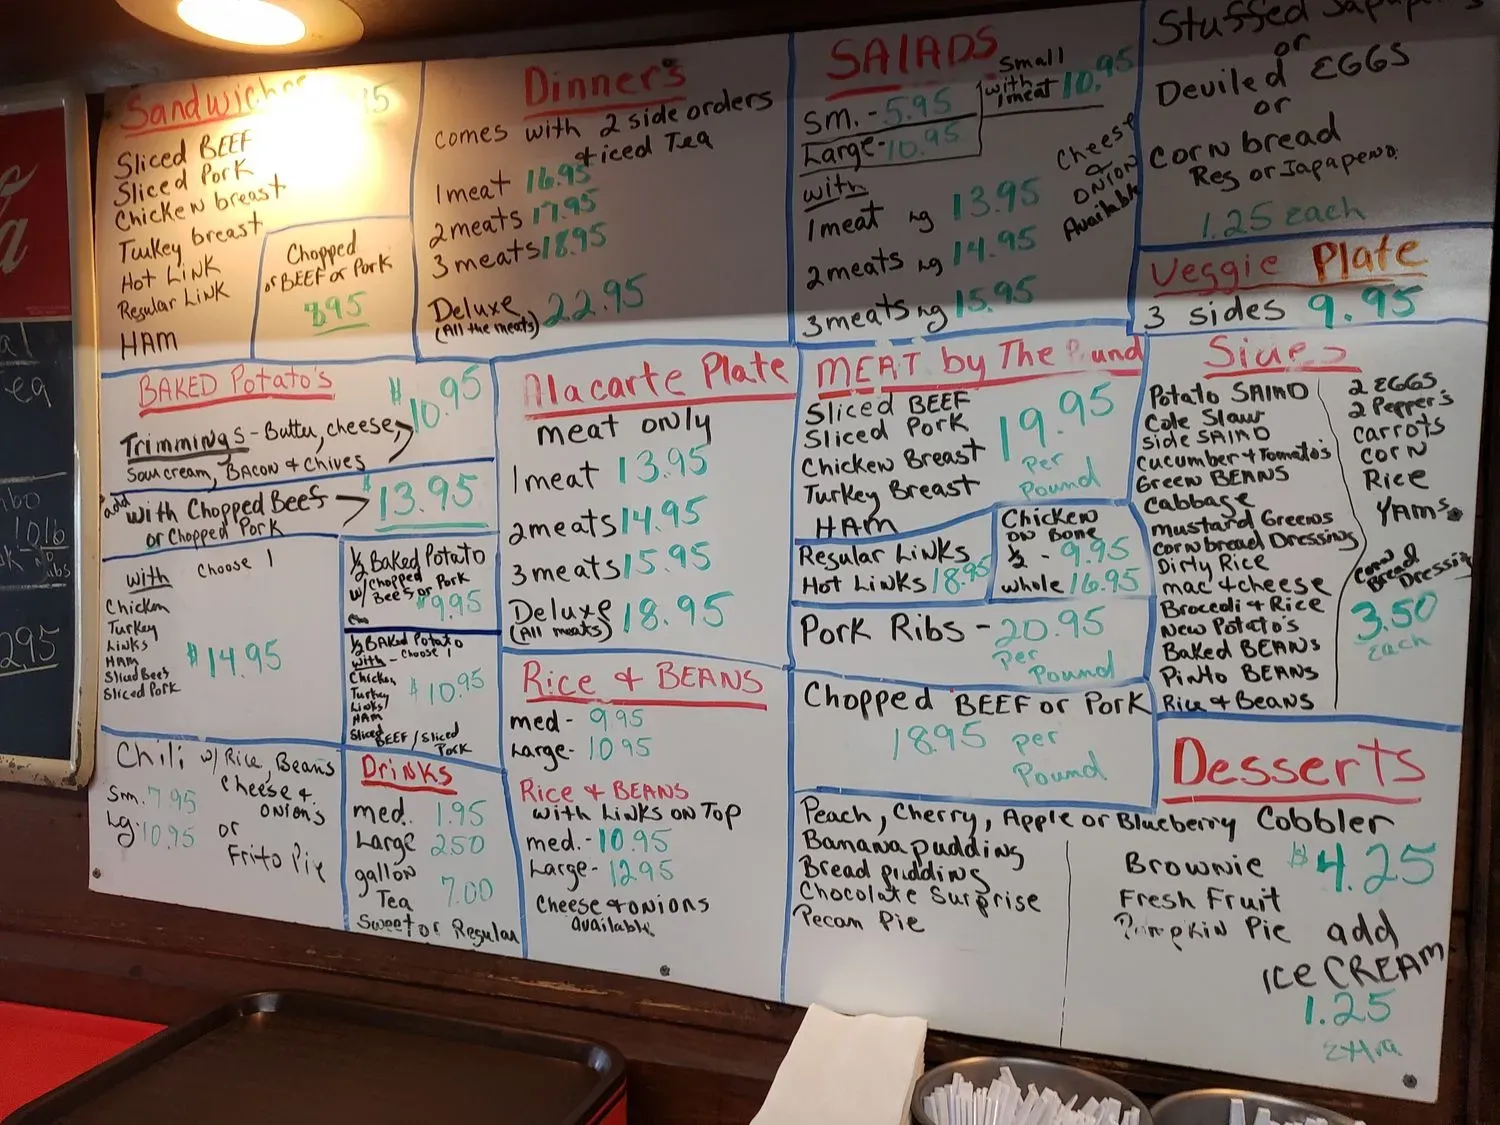 Sandwiches
Sliced BEEF
Sliced Pork
Chicken breast
Turkey breast
Hot Link
Regular Link
HAM
Chopped
or BEEF or Pork
8.95
Dinner's
comes with 2 side orders
+ iced Tea
1 meat 16.95
2 meats 17.95
3 meats 18.95
Deluxe 22.95
(All the meats)
SALADS
Sm. - 5.95
Large - 10.95
Small
with
1 meat 10.95
with
1 meat Lg 13.95
2 meats Lg 14.95
3 meats Lg 15.95
Cheese
or
ONION
Available
Stuffed Japapeno's
or
Deviled EGGS
or
Corn bread
Reg or Japapeno.
1.25 Each
Veggie Plate
3 sides 9.95
BAKED Potato's $10.95
Trimmings - Butter, cheese,
Sour cream, BACON + Chives
add
with Chopped Beef $13.95
or Chopped Pork
with Choose 1
Chicken
Turkey
Links
HAM
Sliced Beef
Sliced Pork
$14.95
½ Baked Potato
w/ Chopped Pork
Beef or
$9.95
½ BAKED Potato
with - Choose 1
Chicken
Turkey
Links/
HAM
Sliced BEEF/Sliced
Pork
$10.95
Alacarte Plate
meat only
1 meat 13.95
2 meats 14.95
3 meats 15.95
Deluxe 18.95
(All meats)
MEAT by The Pound
Sliced BEEF
Sliced Pork
Chicken Breast
Turkey Breast
HAM
19.95
Per
Pound
Regular Links
Hot Links 18.95
Chicken
on Bone
½ - 9.95
whole 16.95
Pork Ribs - 20.95
Per
Pound
Chopped BEEF or Pork
18.95 per
Pound
Sides
Potato SALAD
Cole Slaw
side SALAD
Cucumber + Tomato's
Green BEANS
Cabbage
Mustard Greens
Cornbread Dressing
Dirty Rice
mac + cheese
Brocoli + Rice
New Potato's
Baked BEANs
Pinto BEANs
Rice + Beans
2 EGGS
2 Pepper's
Carrots
CORN
Rice
YAMs
Corn
Bread
Dressing
3.50
Each
Rice + BEANS
med - 9.95
Large - 10.95
Rice + BEANS
with Links on Top
med. - 10.95
Large - 12.95
Cheese + onions
available
Chili w/ Rice, Beans
Cheese +
Onions
Sm. 7.95
Lg. 10.95
or
Frito Pie
Drinks
med. 1.95
Large 2.50
gallon
Tea 7.00
Sweet or Regular
Desserts
Peach, Cherry, Apple or Blueberry Cobbler
Banana pudding
Bread pudding
Chocolate Surprise
Pecan Pie
Brownie
Fresh Fruit
Pumpkin Pie
$4.25
add
ICE CREAM
1.25
Extra